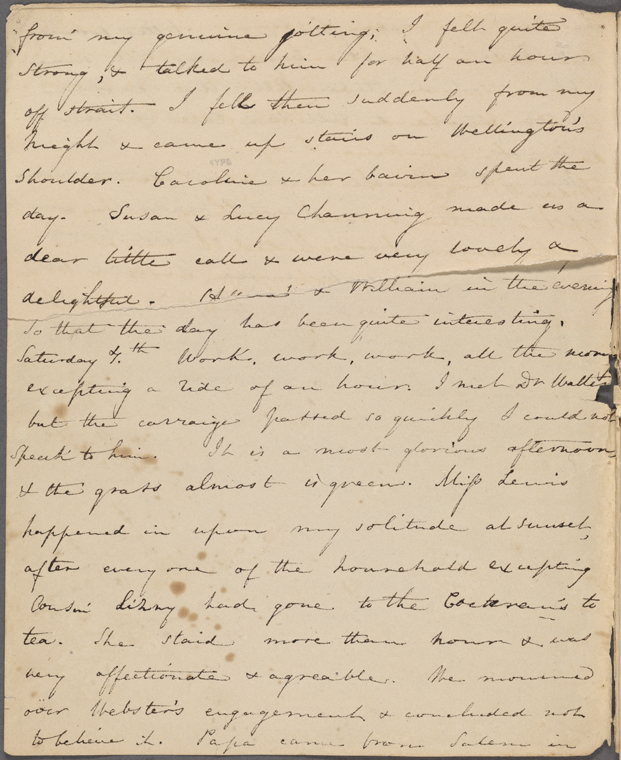 from my genuine jotting; I felt quite
strong, & talked to him for half an hour
off strait. I fell then suddenly from my
height & came up stairs on Wellington's
shoulder. Caroline & her bairn spent the
day. Susan & Lucy Channing made us a
dear little call & were very lovely &
delightful. & William in the evening
So that the day has been quite interesting.
Saturday 7.th Work, work, work, all the morn
excepting a ride of an hour. I met Dr
but the carraige passed so quickly I could not
speak to him. It is a most glorious afternoon,
& the grass almost is green. Miss Lewis
happened in upon my solitude at sunset,
after every one of the household excepting
Cousin Lizzy had gone to the Cochran's to
tea. She staid more than hour & was
very affectionate & agreable. We mourned
over Webster's engagement & concluded not
to believe it. Papa came from Salem in